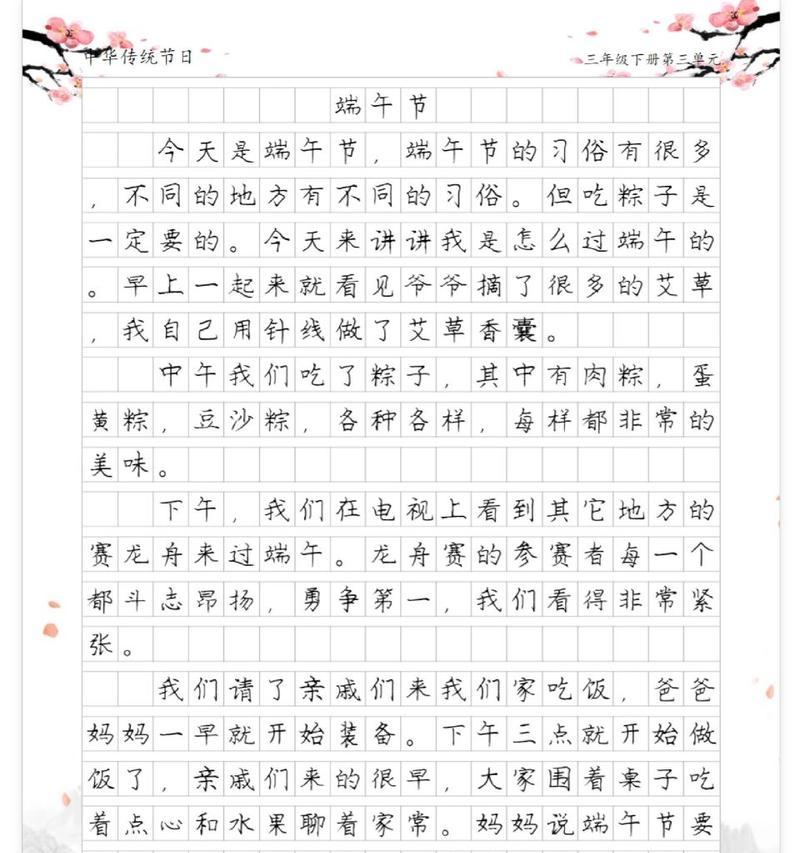 中华传统节日
三年级下册第三单元
端午节
今天是端午节，端午节的习俗有很多
，不同的地方有不同的习俗。但吃粽子是
一定要的。今天来讲讲我是怎么过端午的
。早上一起来就看见爷爷摘了很多的艾草
，我自己用针线做了艾草香囊。
中午我们吃了粽子，其中有肉粽，蛋
黄粽，豆沙粽，各种各样，每样都非常的
美味。
下午，我们在电视上看到其它地方的
赛龙舟来过端午。龙舟赛的参赛者每一个
都斗志昂扬，勇争第一，我们看得非常紧
张。
我们请了亲戚们来我们家吃饭，爸爸
妈妈一早就开始装备。下午三点就开始做
饭了，亲戚们来的很早，大家围着桌子吃
着点心和水果聊着家常。妈妈说端午节要